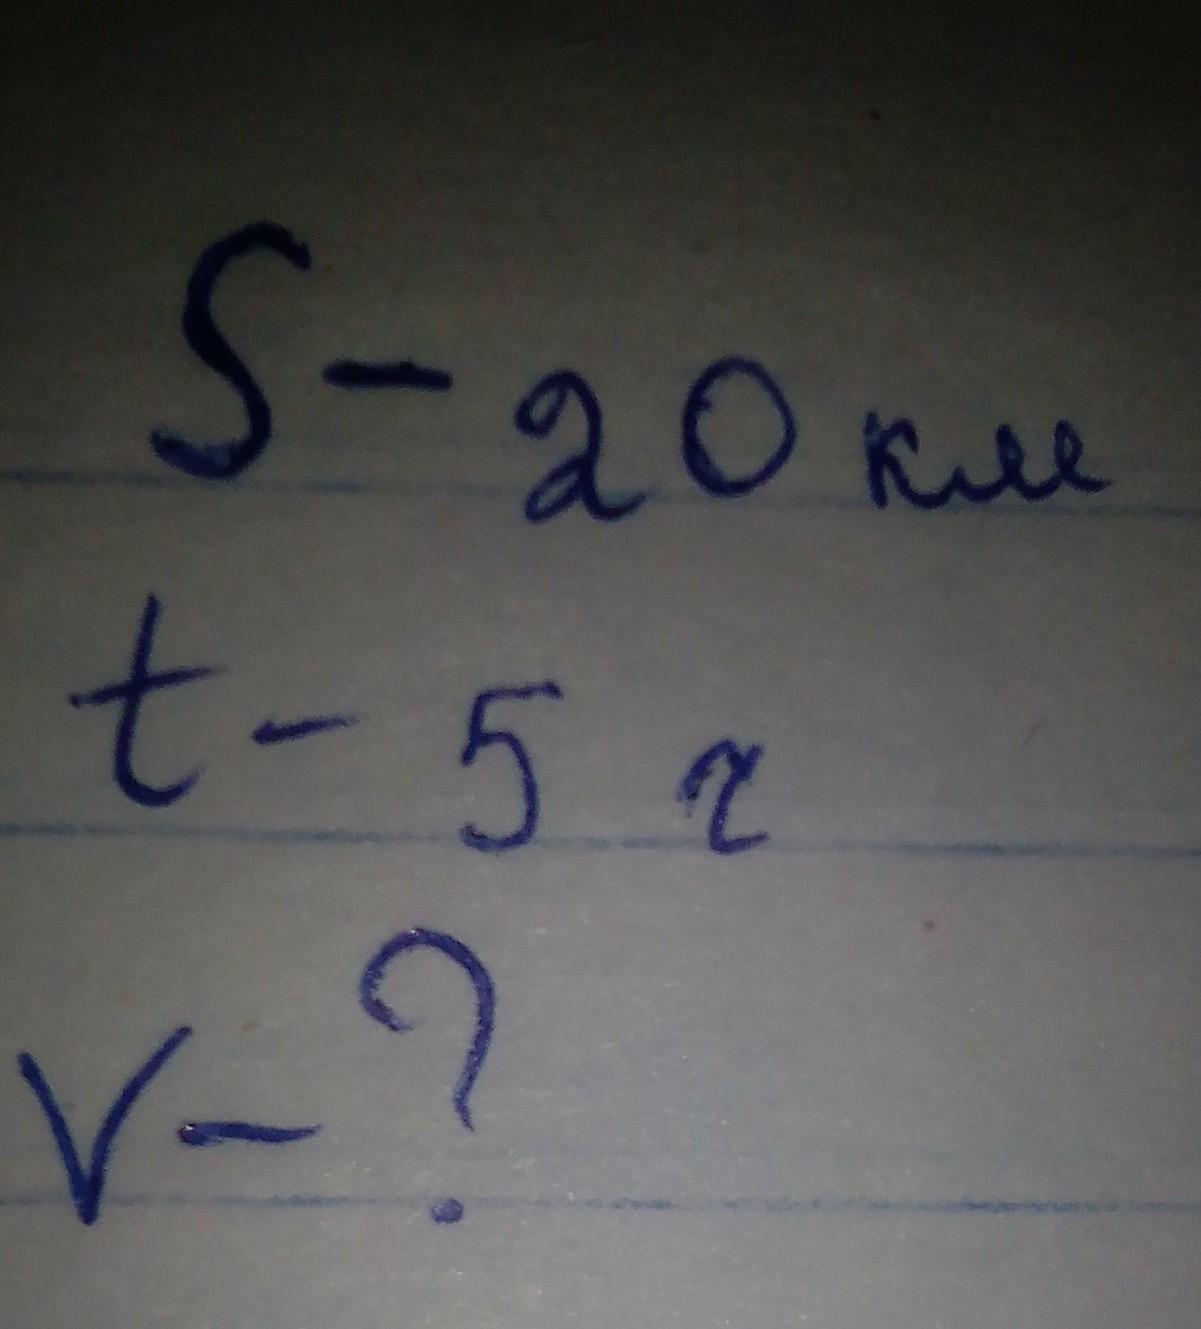 S - 20 км
t - 5 ч
V - ?